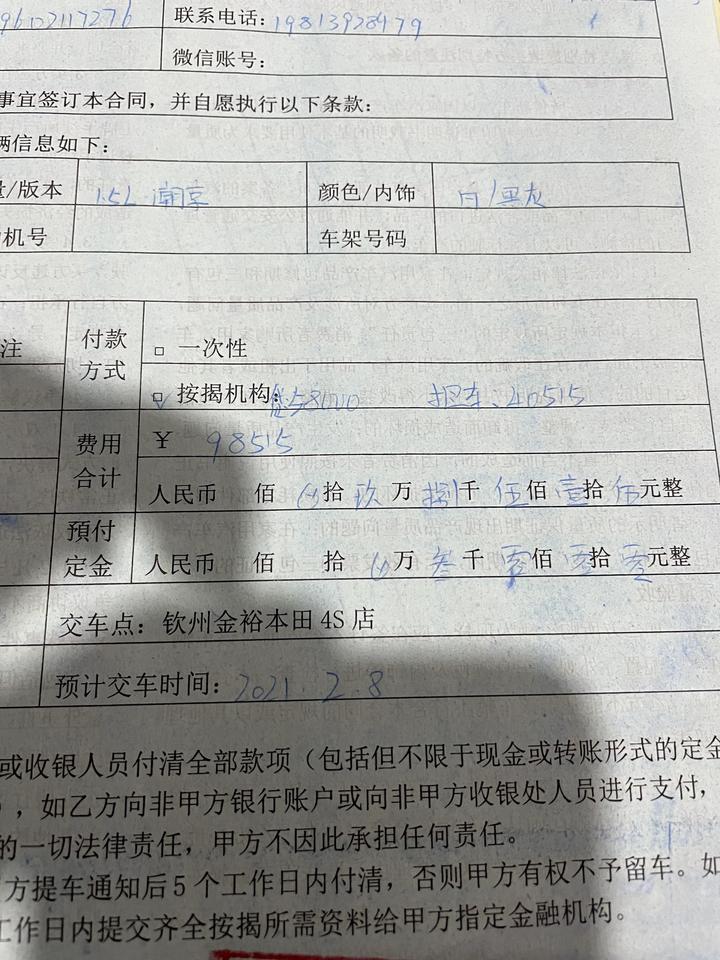 9602117276 联系电话：19813928479
微信账号：
事宜签订本合同，并自愿执行以下条款：
辆信息如下：
量/版本 1.5L 颜色/内饰 白/黑灰
机号 车架号码
注 付款方式 □ 一次性
□ 按揭机构： 58000 40515
费用合计 ￥ 98515
人民币 佰 拾 玖万 捌千 伍佰 壹拾 伍元整
預付定金 人民币 佰 拾 万 叁千 零佰 零拾 零元整
交车点：钦州金裕本田 4S 店
预计交车时间：2021.2.8
或收银人员付清全部款项（包括但不限于现金或转账形式的定金
，如乙方向非甲方银行账户或向非甲方收银处人员进行支付，
的一切法律责任，甲方不因此承担任何责任。
方提车通知后 5 个工作日内付清，否则甲方有权不予留车。如
工作日内提交齐全按揭所需资料给甲方指定金融机构。